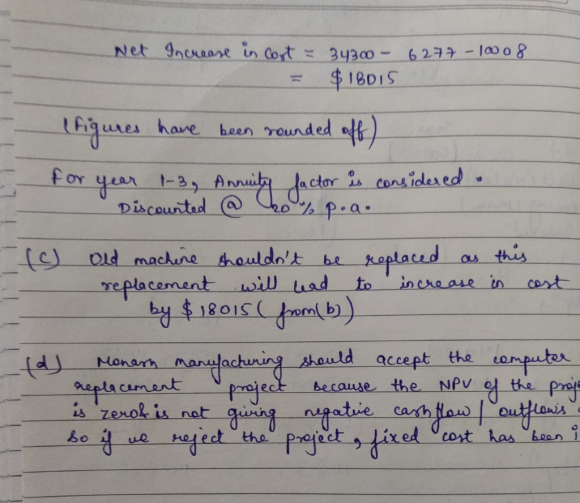 Net Increase in Cost = 34300 - 6277 - 10008
= $18015
(figures have been rounded off)
For year 1-3, Annuity factor is considered.
Discounted @ 20% p.a.
(c) Old machine shouldn't be replaced as this
replacement will lead to increase in cost
by $18015 (from (b))
(d) Monarn manufacturing should accept the computer
replacement project because the NPV of the proje
is zero & is not giving negative cashflow / outflows
So if we reject the project, fixed cost has been i